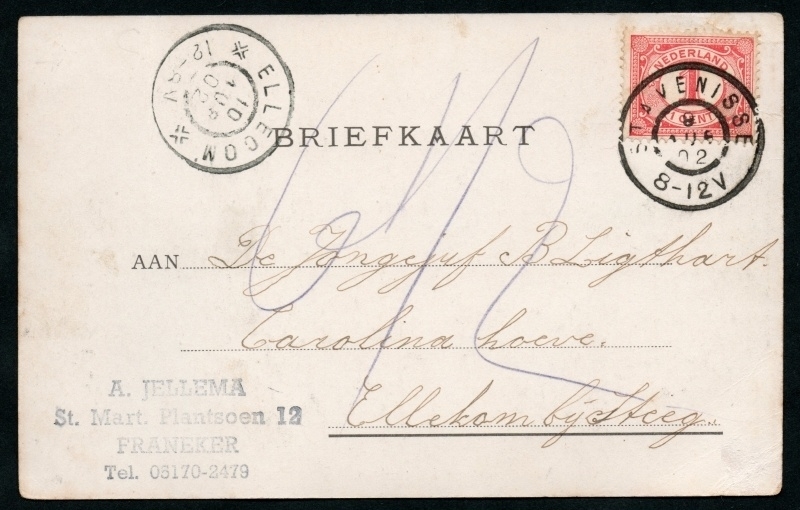 ELLECOM
10
AUG
02
12-8V
NEDERLAND
1
1 CENT
STAVENISSE
9
AUG
02
8-12V
BRIEFKAART
AAN De Jongejuf B Ligthart.
Carolina hoeve.
Ellekom bij Steeg.
A. JELLEMA
St. Mart. Plantsoen 12
FRANEKER
Tel. 05170-2479